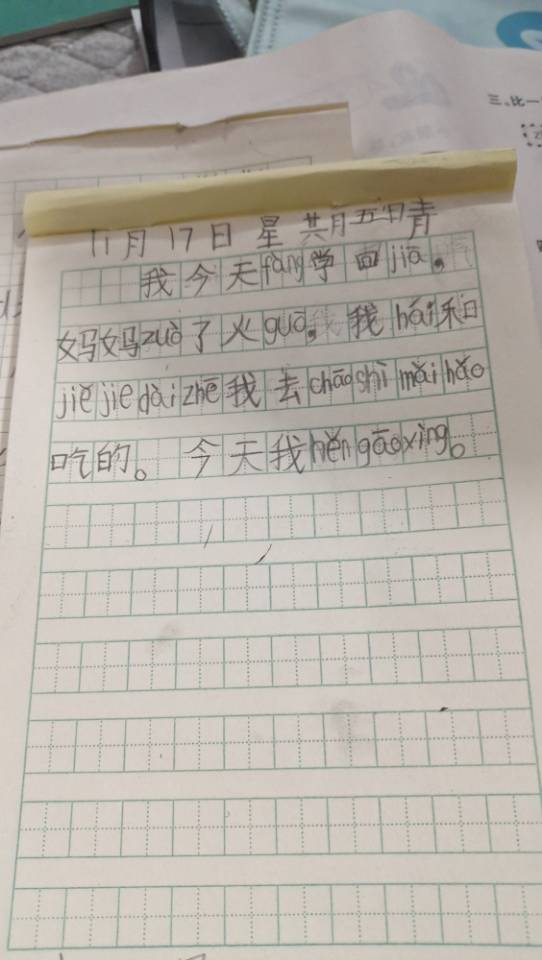 三、比一
11月17日 星共月五日青
我今天fàng学回jiā。
妈妈zuò了火guō。我hái和
jiějiedàizhē我去chāoshìmǎihǎo
吃的。今天我hěngāoxìng。